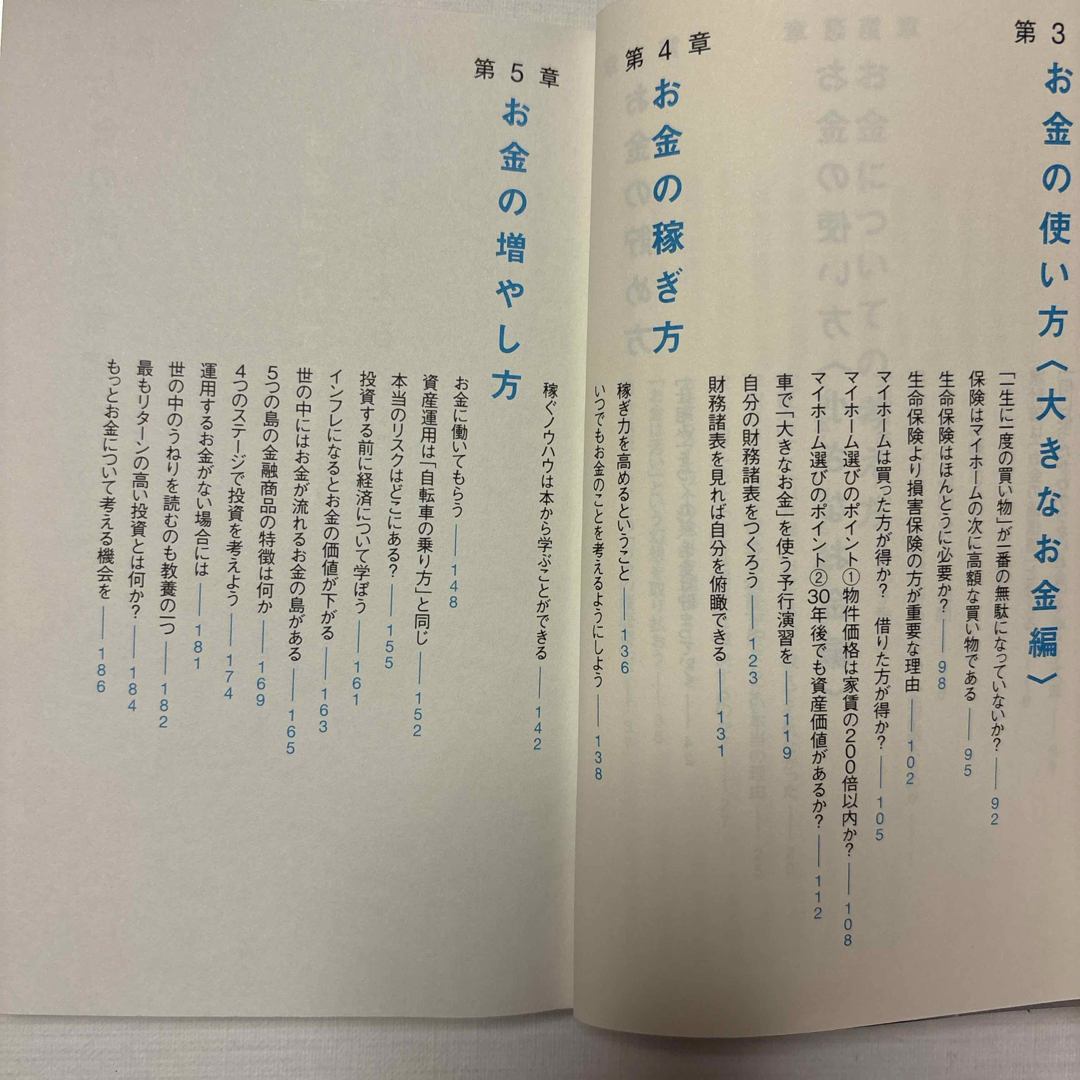 第3
お金の使い方〈大きなお金編〉
「一生に一度の買い物」が一番の無駄になっていないか？――92
保険はマイホームの次に高額な買い物である――95
生命保険はほんとうに必要か？――98
生命保険より損害保険の方が重要な理由――102
マイホームは買った方が得か？　借りた方が得か？――105
マイホーム選びのポイント①物件価格は家賃の200倍以内か？――108
マイホーム選びのポイント②30年後でも資産価値があるか？――112
車で「大きなお金」を使う予行演習を――119
自分の財務諸表をつくろう――123
財務諸表を見れば自分を俯瞰できる――131
第4章
お金の稼ぎ方
稼ぎ力を高めるということ――136
いつでもお金のことを考えるようにしよう――138
稼ぐノウハウは本から学ぶことができる――142
第5章
お金の増やし方
お金に働いてもらう――148
資産運用は「自転車の乗り方」と同じ――152
本当のリスクはどこにある？――155
投資する前に経済について学ぼう――161
インフレになるとお金の価値が下がる――163
世の中にはお金が流れるお金の島がある――165
5つの島の金融商品の特徴は何か――169
4つのステージで投資を考えよう――174
運用するお金がない場合には――181
世の中のうねりを読むのも教養の一つ――182
最もリターンの高い投資とは何か？――184
もっとお金について考える機会を――186